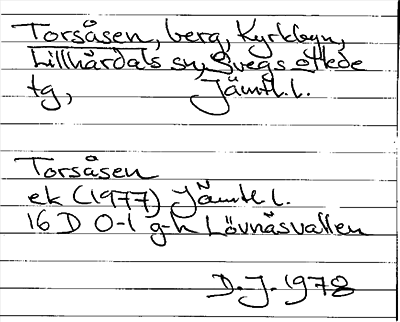 Torsåsen, berg, Kyrkbyn,
Lillhärdals sn, Svegs
tg, Jämtl.l.
Torsåsen
ek (1977) Jämtl.l.
16 D 0-1 g-h Lövnäsvallen
D.J. 1978